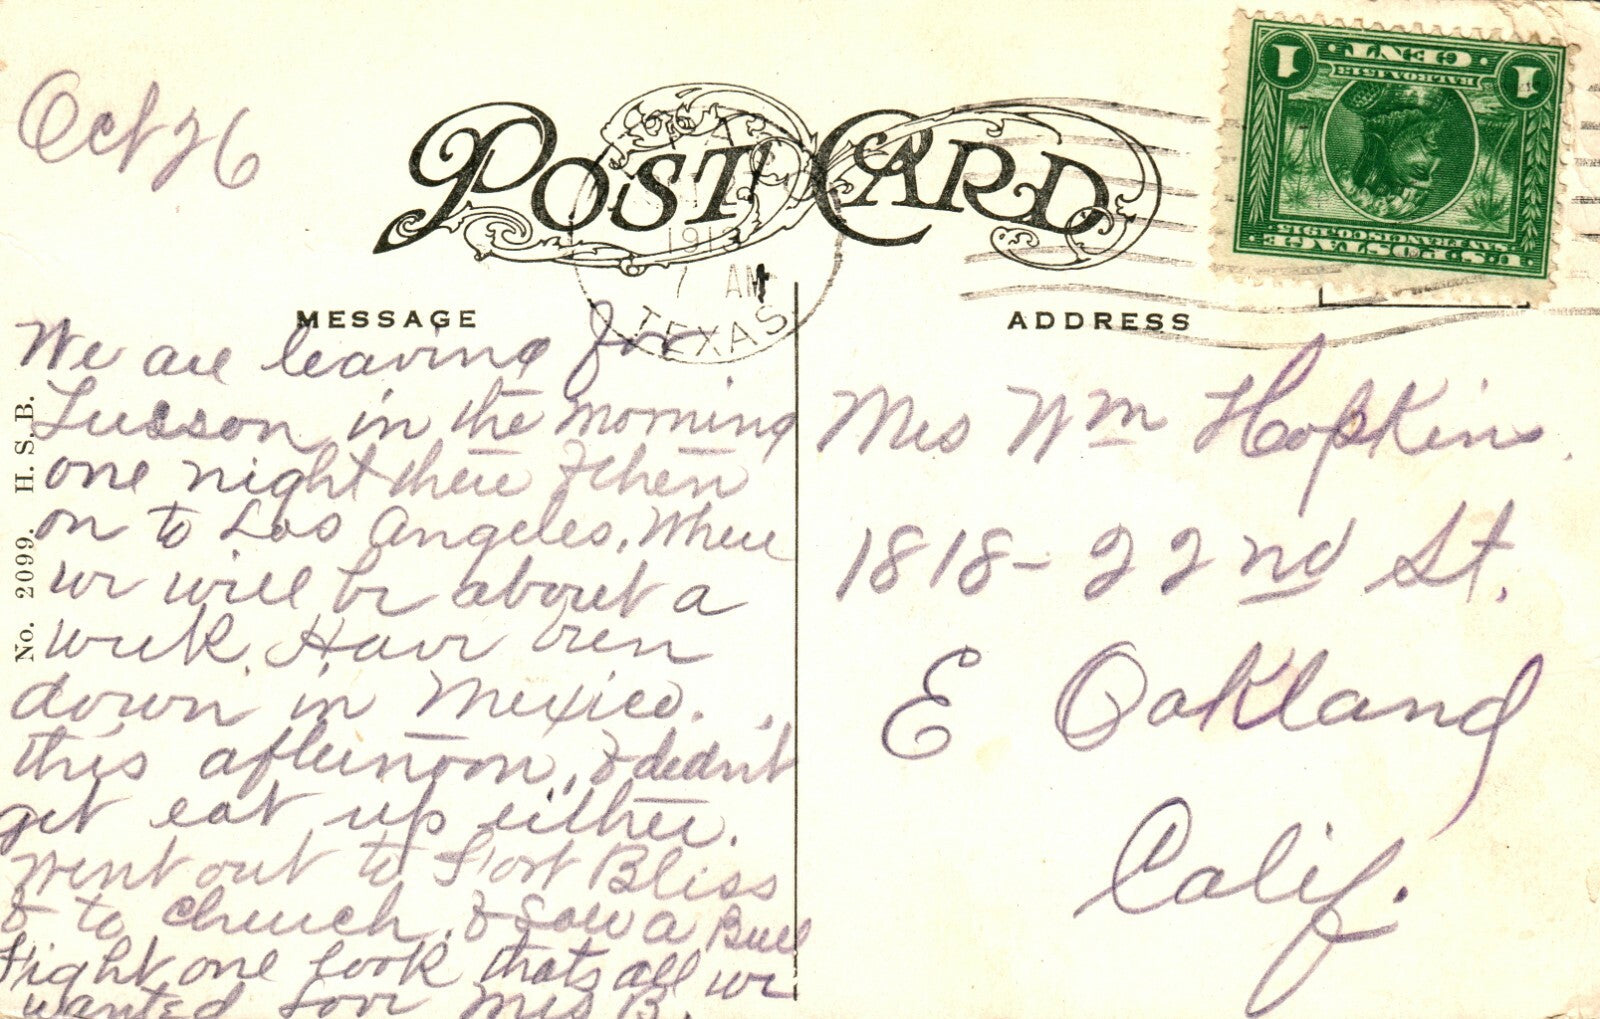 Oct 26
POST CARD
1913
7 AM
TEXAS
1 CENT 1
BALBOA 1513
SAN FRANCISCO 1915
U.S. POSTAGE
MESSAGE
We are leaving for
Tusson in the morning
one night there & then
on to Los Angeles. Where
we will be about a
week. Have been
down in Mexico.
this afternoon, & didn't
get eat up either.
Went out to Fort Bliss
& to church. & Saw a Bull
Fight, one look thats all we
wanted Love Mrs B.
No. 2099. H. S. B.
ADDRESS
Mrs Wm Hopkins.
1818-22nd St.
E Oakland
Calif.